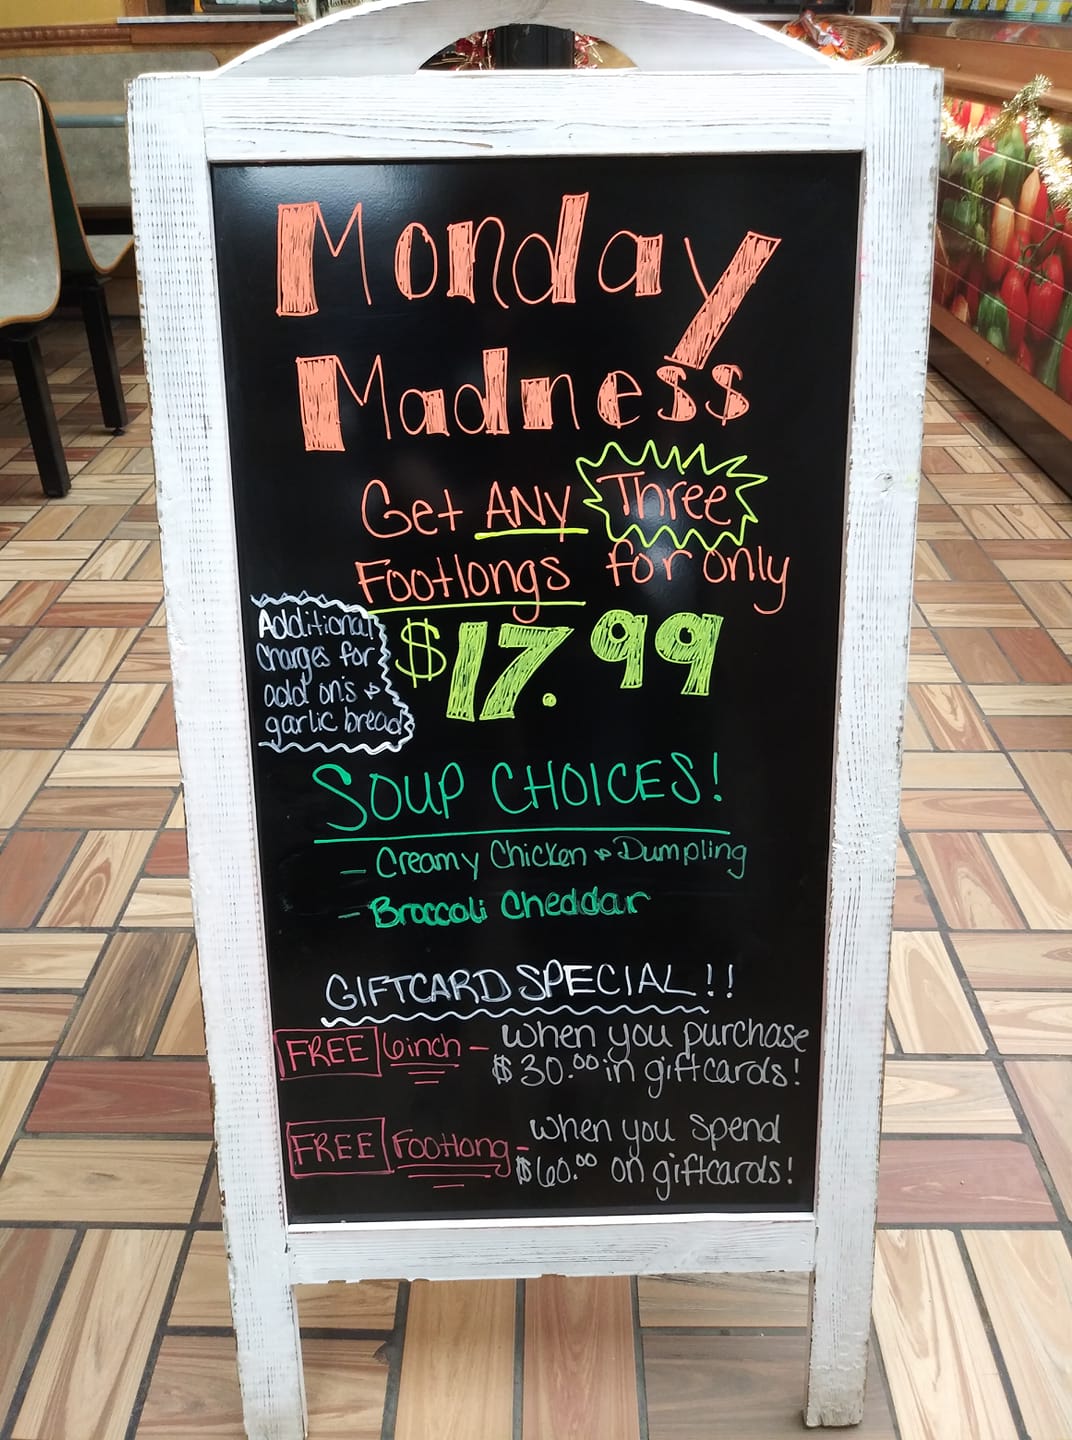 Monday
Madness
Get ANY Three
Footlongs for only
$17.99
Additional
Charges for
add on's &
garlic bread
SOUP CHOICES!
- Creamy Chicken & Dumpling
- Broccoli Cheddar
GIFTCARD SPECIAL!!
FREE 6inch - when you purchase
$30.00 in giftcards!
FREE Footlong - when you spend
$60.00 on giftcards!